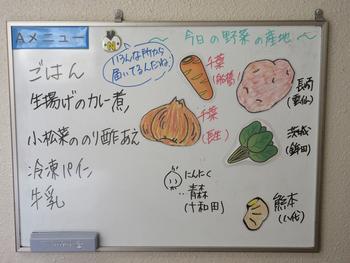 Aメニュー
いろんな所から
届いてるんだね
今日の野菜の産地
ごはん
生揚げのカレー煮
小松菜ののり酢あえ
冷凍パイン
牛乳
千葉
長崎
(雲仙)
千葉
(長生)
茨城
(鉾田)
にんにく
青森
(十和田)
熊本
(八代)